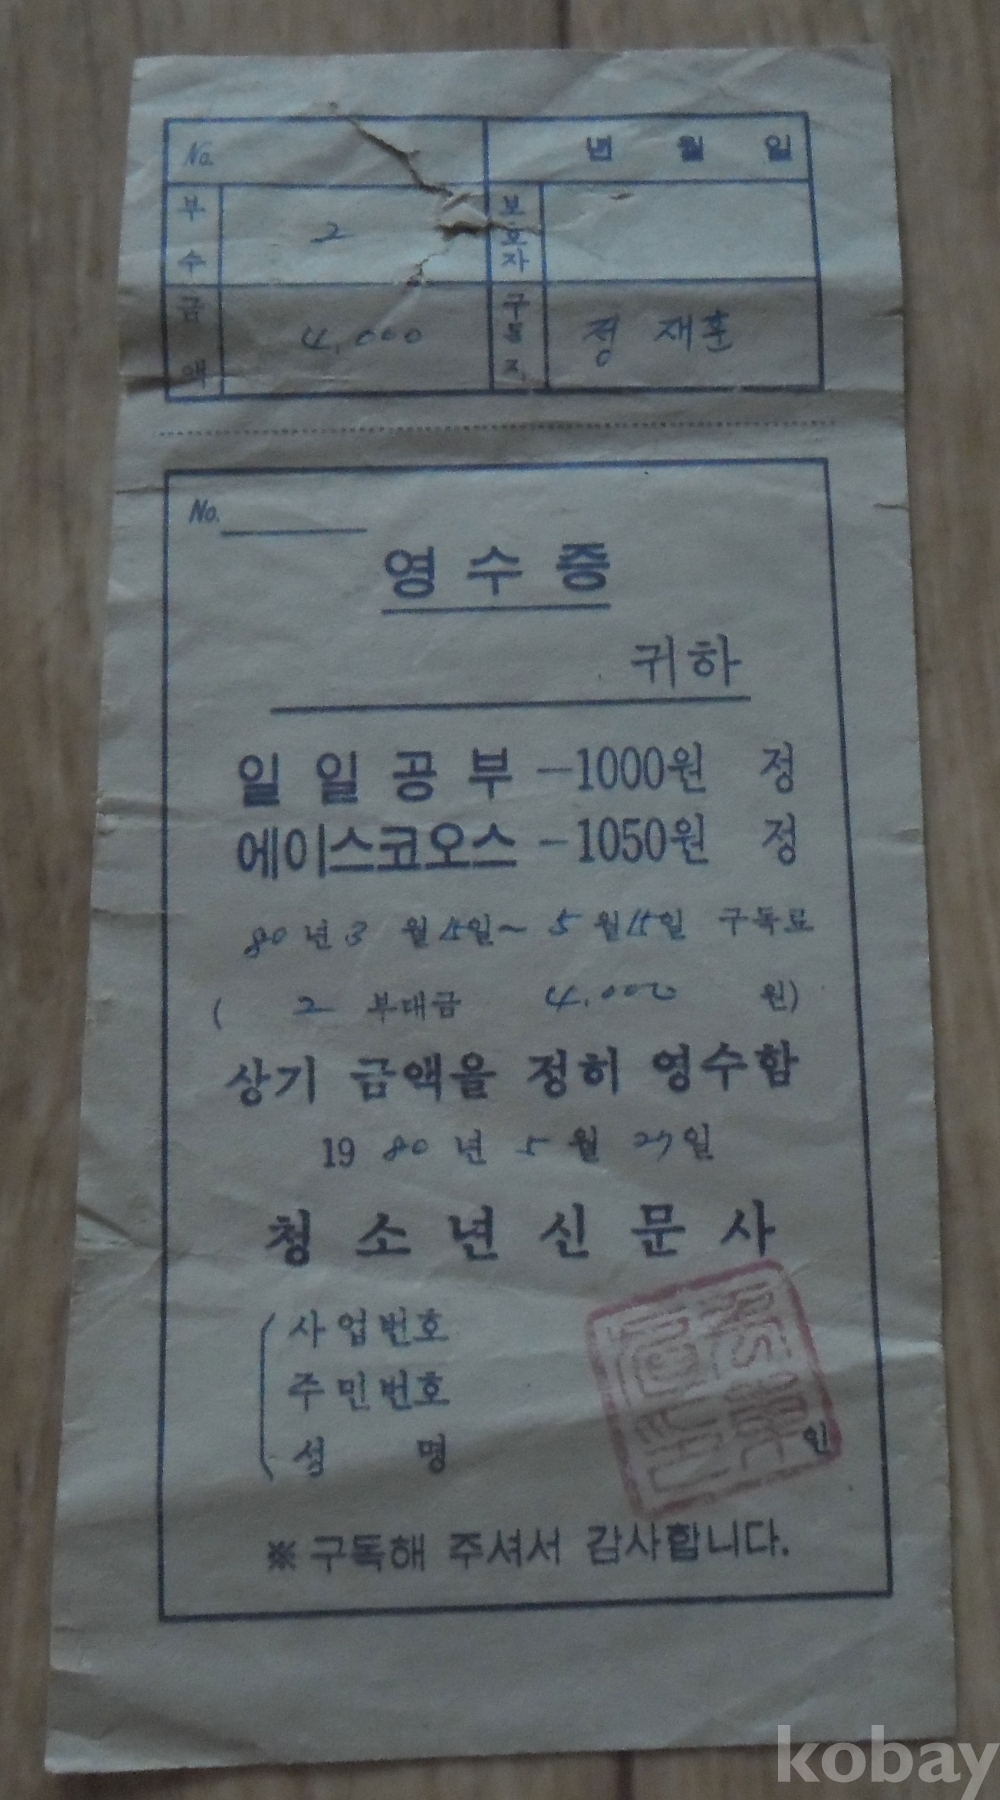 No. 년 월 일
부수 2 보호자
금액 4,000 구독자 정 재훈
No.
영 수 증
귀하
일 일 공 부 -1000원 정
에이스코오스 -1050원 정
80년 3 월 15일~ 5 월 15일 구독료
( 2 부대금 4,000 원)
상기 금액을 정히 영수함
19 80 년 5 월 27일
청 소 년 신 문 사
사업번호
주민번호
성 명 인
※ 구독해 주셔서 감사합니다.
kobay